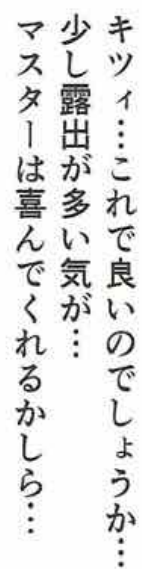 キツィ…これで良いのでしょうか…
少し露出が多い気が…
マスターは喜んでくれるかしら…